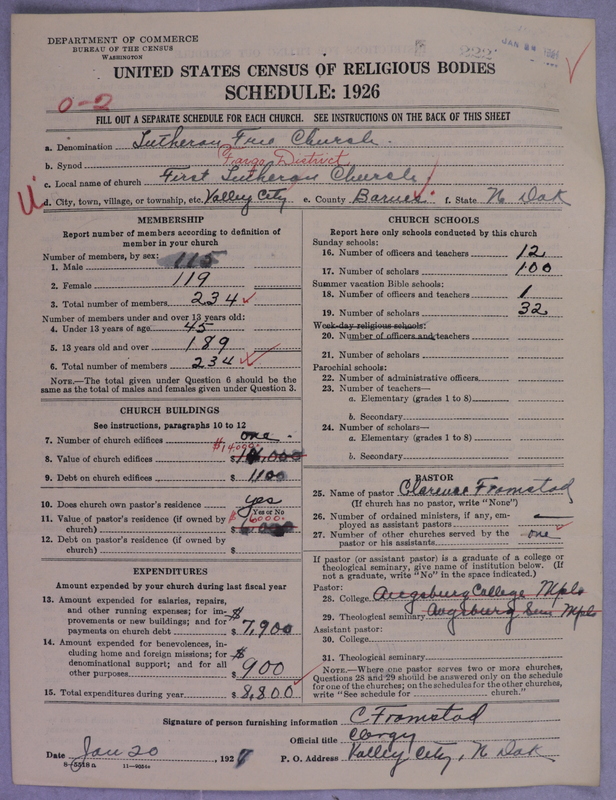 DEPARTMENT OF COMMERCE
BUREAU OF THE CENSUS
WASHINGTON
UNITED STATES CENSUS OF RELIGIOUS BODIES
SCHEDULE: 1926
0-2
FILL OUT A SEPARATE SCHEDULE FOR EACH CHURCH. SEE INSTRUCTIONS ON THE BACK OF THIS SHEET
a. Denomination Lutheran Free Church.
b. Synod Fargo District
c. Local name of church First Lutheran Church
d. City, town, village, or township, etc. Valley City e. County Barnes f. State N Dak
MEMBERSHIP
Report number of members according to definition of
member in your church
Number of members, by sex:
1. Male 115
2. Female 119
3. Total number of members 234
Number of members under and over 13 years old:
4. Under 13 years of age 45
5. 13 years old and over 189
6. Total number of members 234
NOTE.—The total given under Question 6 should be the
same as the total of males and females given under Question 3.
CHURCH BUILDINGS
See instructions, paragraphs 10 to 12
7. Number of church edifices one
$14000.
8. Value of church edifices $
9. Debt on church edifices $ 1100
10. Does church own pastor's residence? yes
Yes or No
11. Value of pastor's residence (if owned by
church) $ 6000.
12. Debt on pastor's residence (if owned by
church) $
EXPENDITURES
Amount expended by your church during last fiscal year
13. Amount expended for salaries, repairs,
and other running expenses; for im-
provements or new buildings; and for
payments on church debt $ 7,900
14. Amount expended for benevolences, in-
cluding home and foreign missions; for
denominational support; and for all
other purposes $ 900
15. Total expenditures during year $ 8,800
CHURCH SCHOOLS
Report here only schools conducted by this church
Sunday schools:
16. Number of officers and teachers 12
17. Number of scholars 100
Summer vacation Bible schools:
18. Number of officers and teachers 1
19. Number of scholars 32
Week-day religious schools:
20. Number of officers and teachers
21. Number of scholars
Parochial schools:
22. Number of administrative officers
23. Number of teachers—
a. Elementary (grades 1 to 8)
b. Secondary
24. Number of scholars—
a. Elementary (grades 1 to 8)
b. Secondary
PASTOR
25. Name of pastor Clarence Framstad
(If church has no pastor, write "None")
26. Number of ordained ministers, if any, em-
ployed as assistant pastors —
27. Number of other churches served by the
pastor or his assistants one
If pastor (or assistant pastor) is a graduate of a college or
theological seminary, give name of institution below. (If
not a graduate, write "No" in the space indicated.)
Pastor:
28. College Augsburg College Mpls
29. Theological seminary Augsburg Sem Mpls
Assistant pastor:
30. College
31. Theological seminary
NOTE.—Where one pastor serves two or more churches,
Questions 28 and 29 should be answered only on the schedule
for one of the churches; on the schedules for the other churches,
write "See schedule for church."
Signature of person furnishing information C Framstad
Official title Clergy
Date Jan 20, 1927 P. O. Address Valley City, N Dak
8-5518 a 11-9051